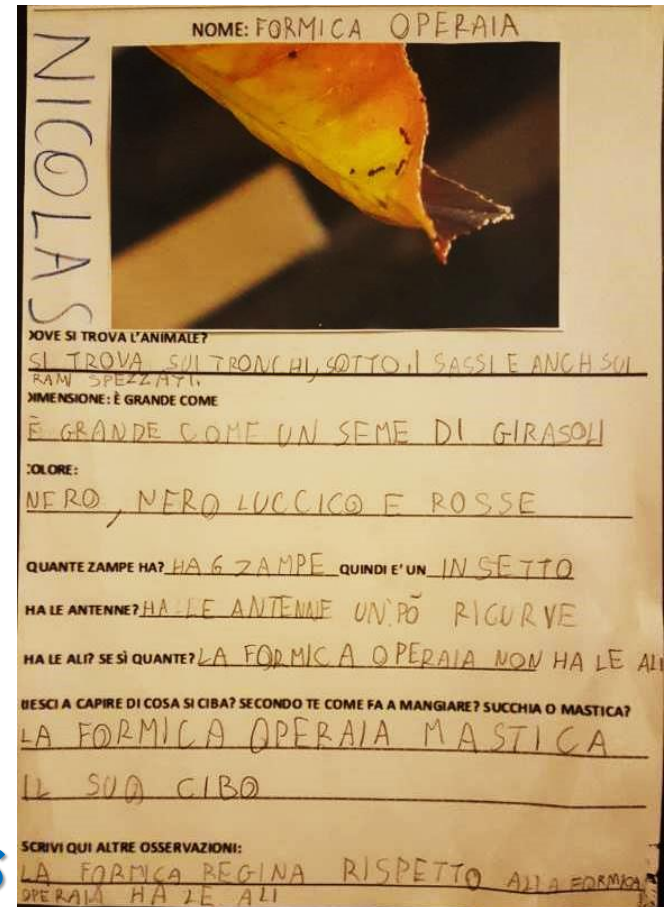 NOME: FORMICA OPERAIA
NICOLAS
DOVE SI TROVA L'ANIMALE?
SI TROVA SUI TRONCHI, SOTTO I SASSI E ANCH SUI
RAMI SPEZZATI.
DIMENSIONE: È GRANDE COME
È GRANDE COME UN SEME DI GIRASOLI
COLORE:
NERO, NERO LUCCICO E ROSSE
QUANTE ZAMPE HA? HA 6 ZAMPE QUINDI E' UN INSETTO
HA LE ANTENNE? HA LE ANTENNE UN PÒ RICURVE
HA LE ALI? SE SÌ QUANTE? LA FORMICA OPERAIA NON HA LE ALI
RIESCI A CAPIRE DI COSA SI CIBA? SECONDO TE COME FA A MANGIARE? SUCCHIA O MASTICA?
LA FORMICA OPERAIA MASTICA
IL SUO CIBO
SCRIVI QUI ALTRE OSSERVAZIONI:
LA FORMICA REGINA RISPETTO ALLA FORMICA
OPERAIA HA LE ALI
S